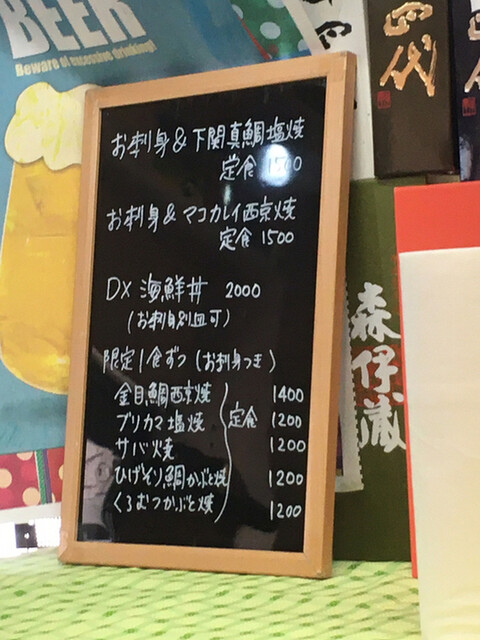 BEER
Beware of excessive drinking!
四代
お刺身&下関真鯛塩焼
定食 1500
お刺身&マコカレイ西京焼
定食 1500
DX 海鮮丼 2000
(お刺身別皿可)
限定1食ずつ(お刺身つき)
金目鯛西京焼 1400
ブリカマ塩焼 定食 1200
サバ焼 1200
ひげそり鯛かぶと焼 1200
くろむつかぶと焼 1200
森伊蔵